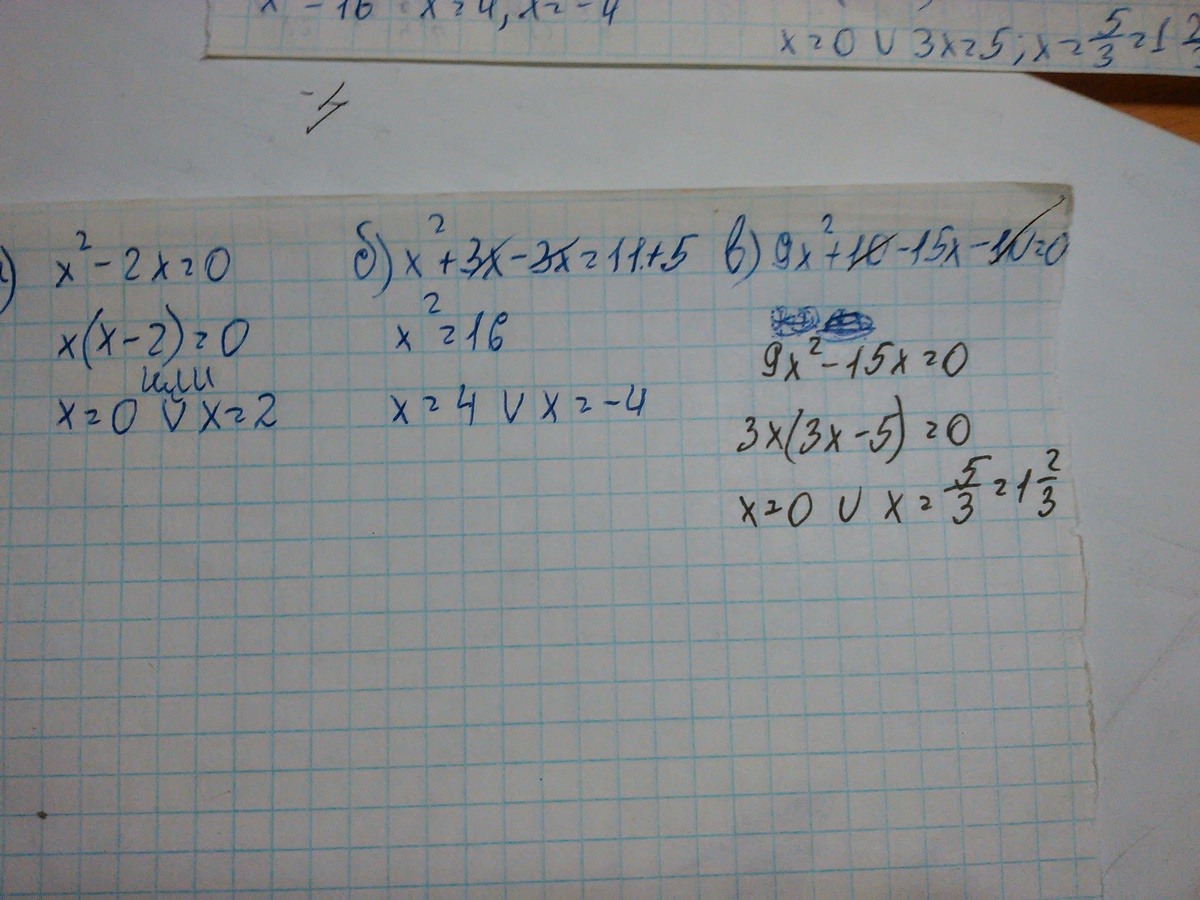 x² - 16 x = 4, x = -4
x = 0 ∨ 3x = 5; x = 5/3 = 1
-4
) x² - 2x = 0
x(x - 2) = 0
или
x = 0 ∨ x = 2
б) x² + 3x - 3x = 11 + 5
x² = 16
x = 4 ∨ x = -4
в) 9x² + 10 - 15x - 10 = 0
9x² - 15x = 0
3x(3x - 5) = 0
x = 0 ∨ x = 5/3 = 1 2/3